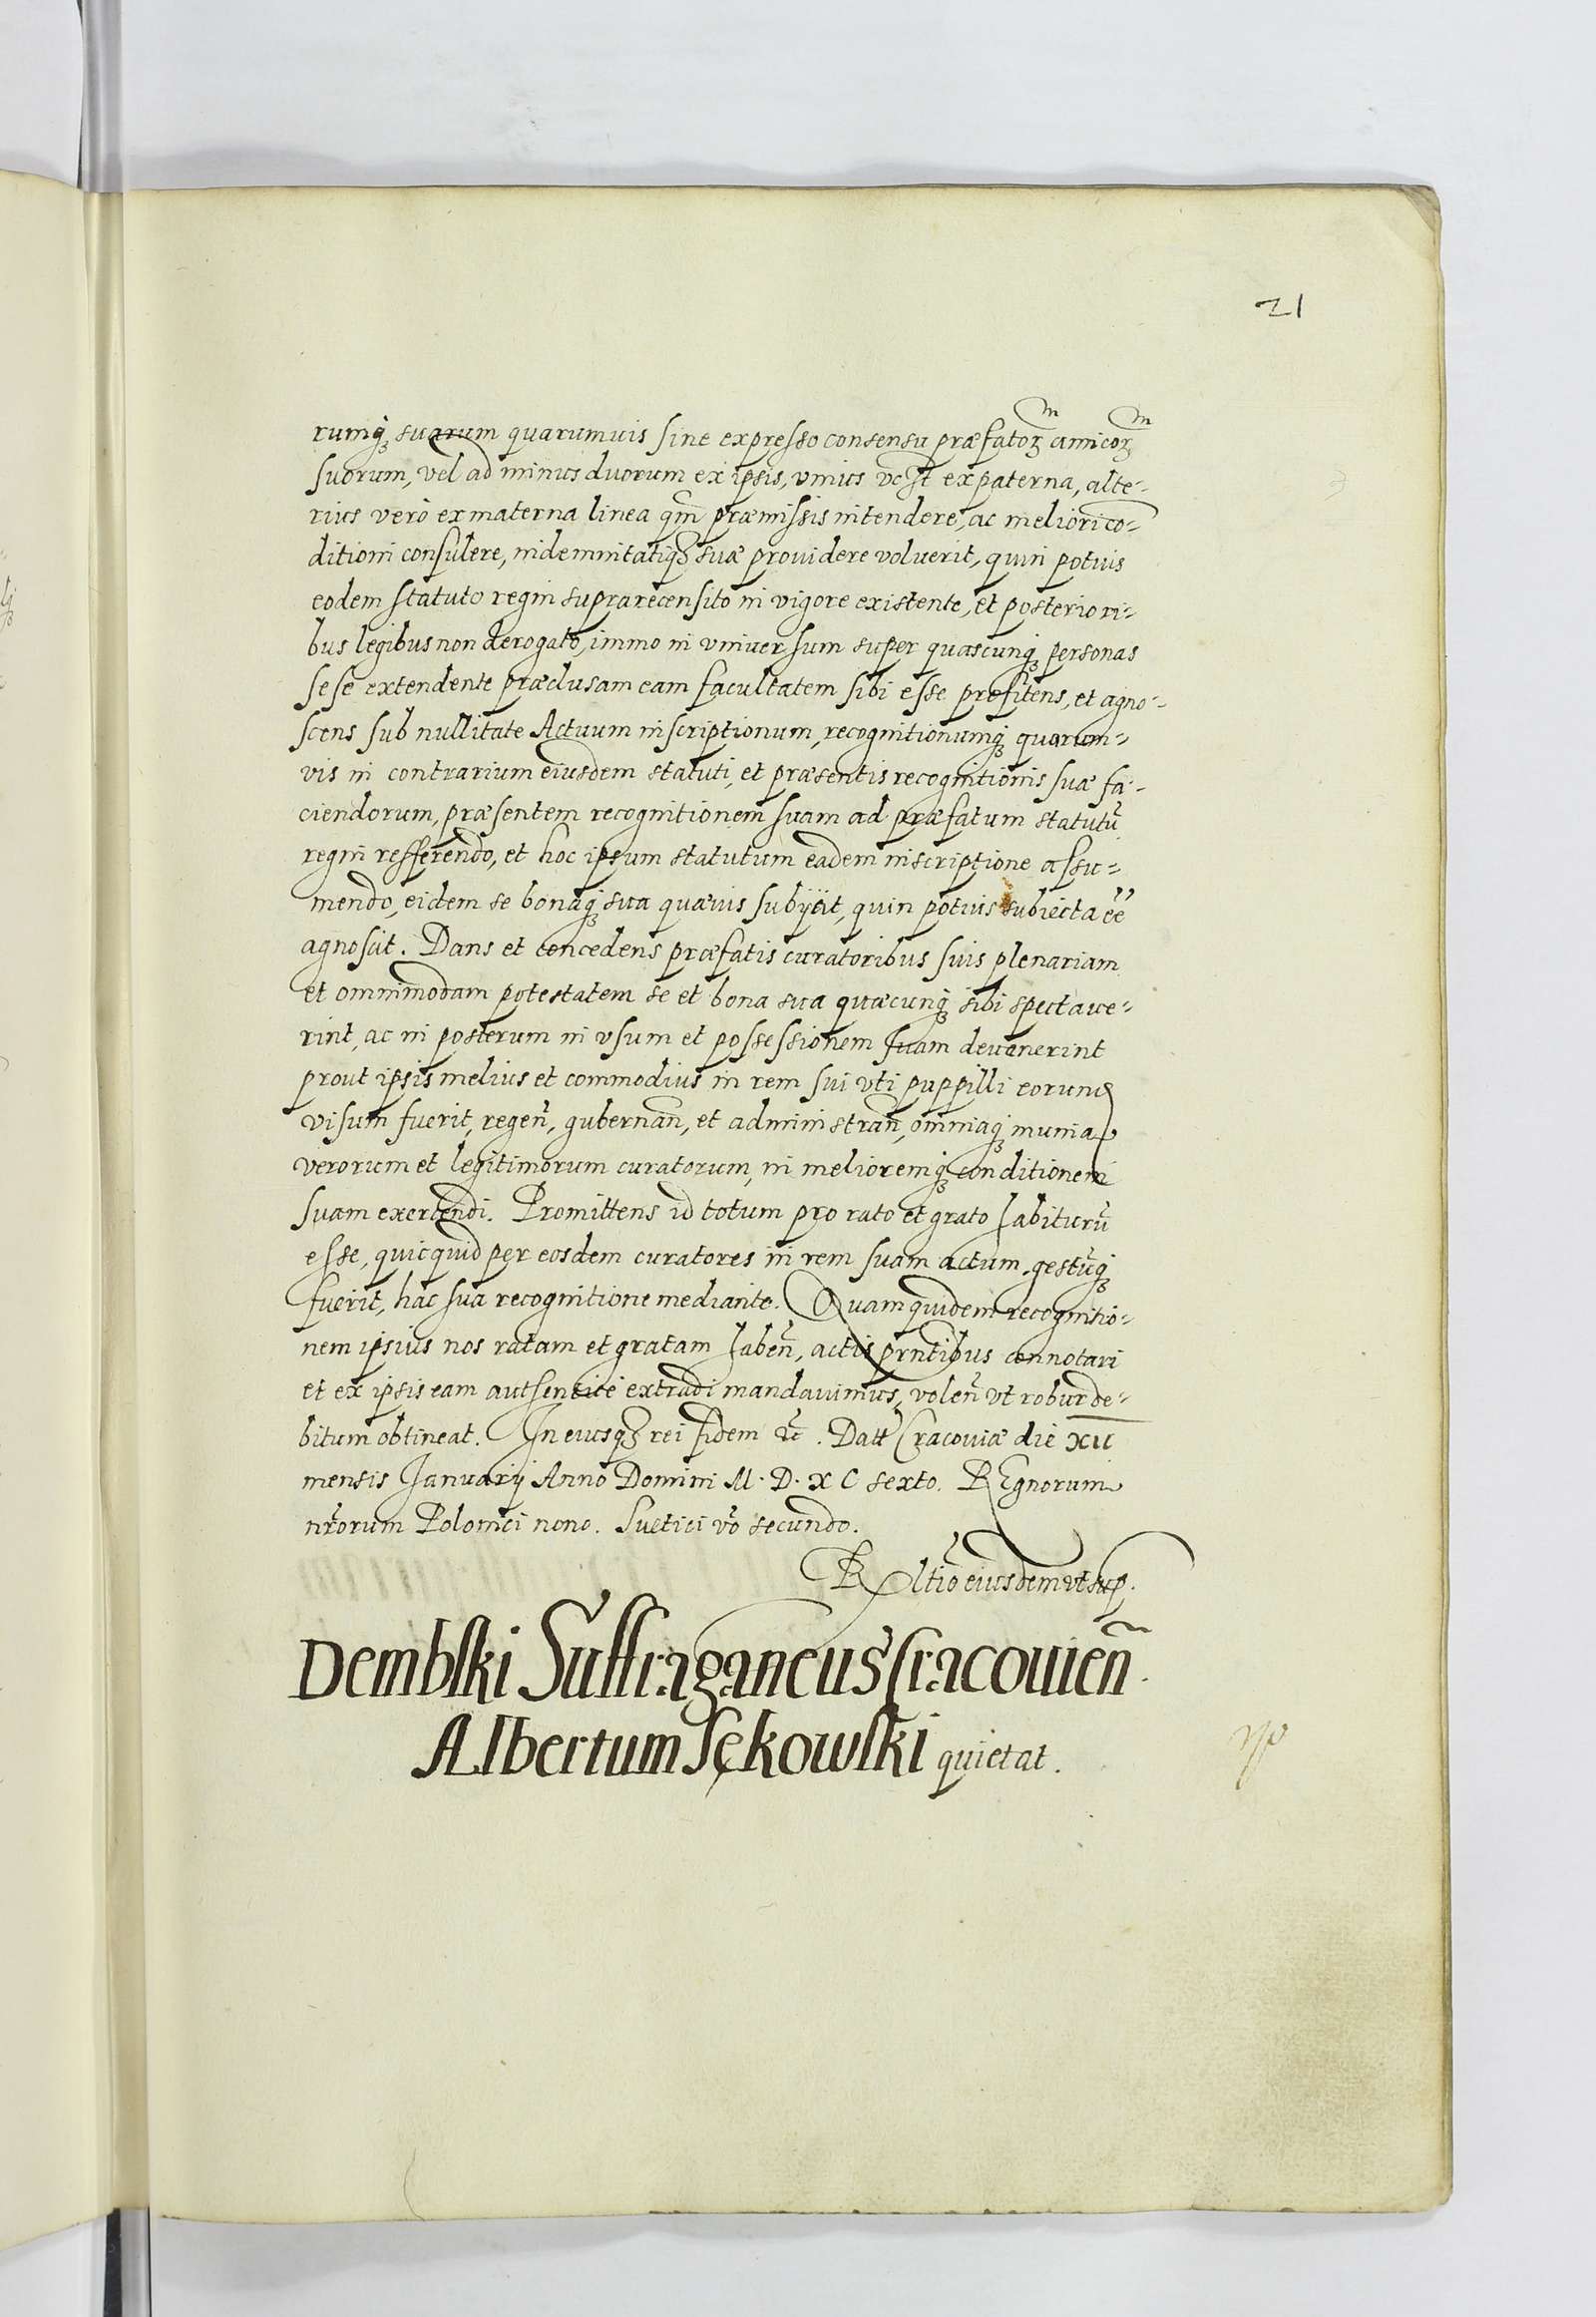 21
rumq; suarum quarumuis sine expresso consensu præfatoꝝ amicoꝝ
suorum, vel ad minus duorum ex ipsis, vnius vcꝫt ex paterna, alte-
rius verò ex materna linea qm̃ præmissis intendere, ac meliori co-
ditioni consulere, indemnitatiqꝫ suæ prouidere voluerit, quin potius
eodem statuto regni suprarecensito in vigore existente, et posteriori-
bus legibus non derogato, immo in vniuersum super quascunqꝫ personas
sese extendente præclusam eam facultatem sibi esse profitens, et agno-
scens sub nullitate Actuum inscriptionum, recognitionumqꝫ quarum-
vis in contrarium eiusdem statuti, et præsentis recognitionis suæ fa-
ciendorum, præsentem recognitionem suam ad præfatum statutũ
regni refferendo, et hoc ipsum statutum eadem inscriptione assu-
mendo, eidem se bonaqꝫ sua quæuis subijcit, quin potius subiecta ẽe
agnoscit. Dans et concedens præfatis curatoribus suis plenariam
et omnimodam potestatem se et bona sua quæcunqꝫ sibi spectaue-
rint, ac in posterum in vsum et possessionem suam deuenerint
prout ipsis melius et commodius in rem sui vti puppilli eorum
visum fuerit, regeñ, gubernañ, et administrañ, omniaqꝫ munia
verorum et legitimorum curatorum, in melioremqꝫ conditionem
suam exercendi. Promittens id totum pro rato et grato habiturũ
esse, quicquid per eosdem curatores in rem suam actum, gestũqꝫ
fuerit, hac sua recognitione mediante. Quam quidem recognitio-
nem ipsius nos ratam et gratam habeñ, actis prñtibus connotari
et ex ipsis eam authenticè extradi mandauimus, voleñ vt robur de-
bitum obtineat. In cuius qꝫ rei fidem etc̃. Datt Cracouiæ die XII
mensis Januarij Anno Domini M. D. X C sexto. REgnorum
nr̃orum Poloniæi nono. Suetici vo secundo.
Rltĩo eiusdem vt sup.
Dembski Suffraganeus Cracouieñ.
Albertum Sękowski quietat.